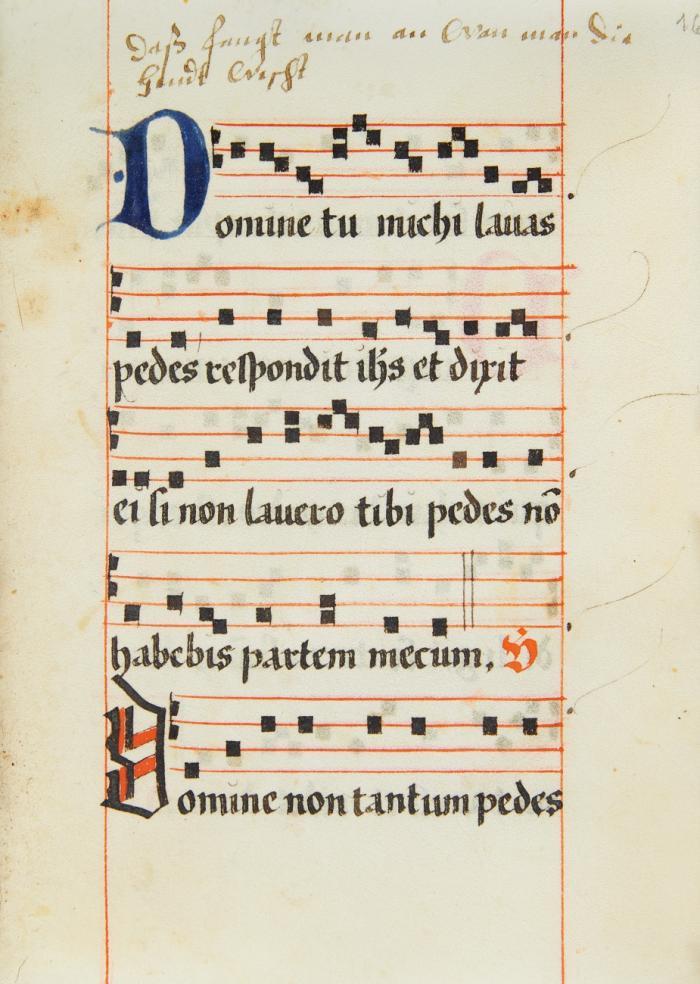 daß fangt man an Wan man die
hendt wescht
16
Domine tu michi lauas
pedes respondit ihs et dixit
ei si non lauero tibi pedes nō
habebis partem mecum,
Domine non tantum pedes